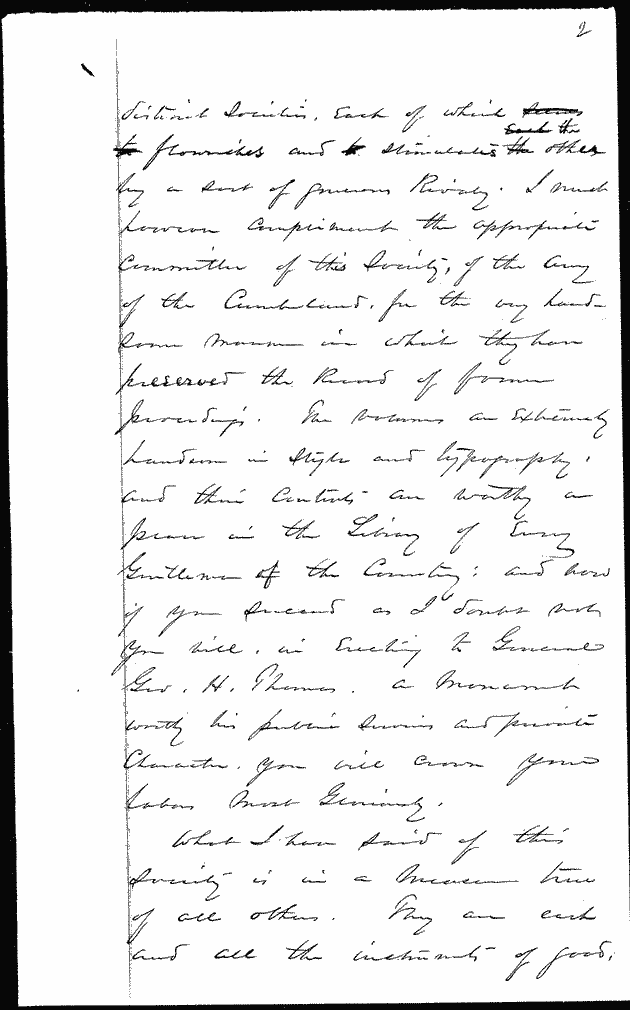 2
distinct Societies, Each of which seems
Each the
to flourishes and to stimulates the other
by a sort of generous Rivalry. I must
however compliment the appropriate
Committee of this Society, of the Army
of the Cumberland, for the very hand-
some manner in which they have
preserved the Record of former
proceedings. The volumes are Extremely
handsome in style and typography,
and their contents are worthy a
place in the Library of Every
Gentleman of the Country: and now
if you succeed as I doubt not
you will, in Erecting to General
Geo. H. Thomas, a Monument
worthy his public services and private
Character, you will crown your
labors most Gloriously.
What I have said of this
Society is in a measure true
of all others. They are each
and all the instruments of good,